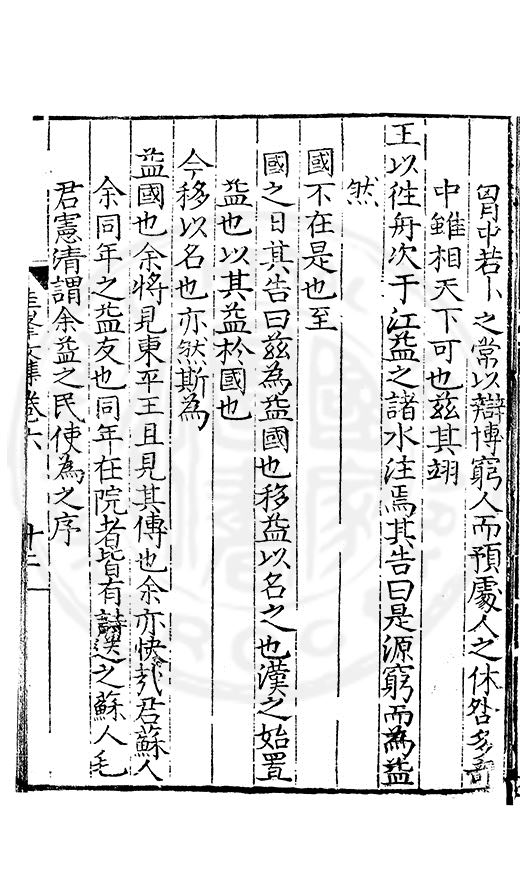 胷中若卜之常以辯博窮人而預處人之休咎多竒
中雖相天下可也茲其翊
王以徃舟次于江益之諸水注焉其告曰是源窮而為益
然
國不在是也至
國之日其告曰茲為益國也移益以名之也漢之始置
益也以其益於國也
今移以名也亦然斯為
益國也余將見東平王且見其傳也余亦快哉君蘇人
余同年之益友也同年在院者皆有詩送之蘇人毛
君憲清謂余益之民使為之序
文集卷六
十二